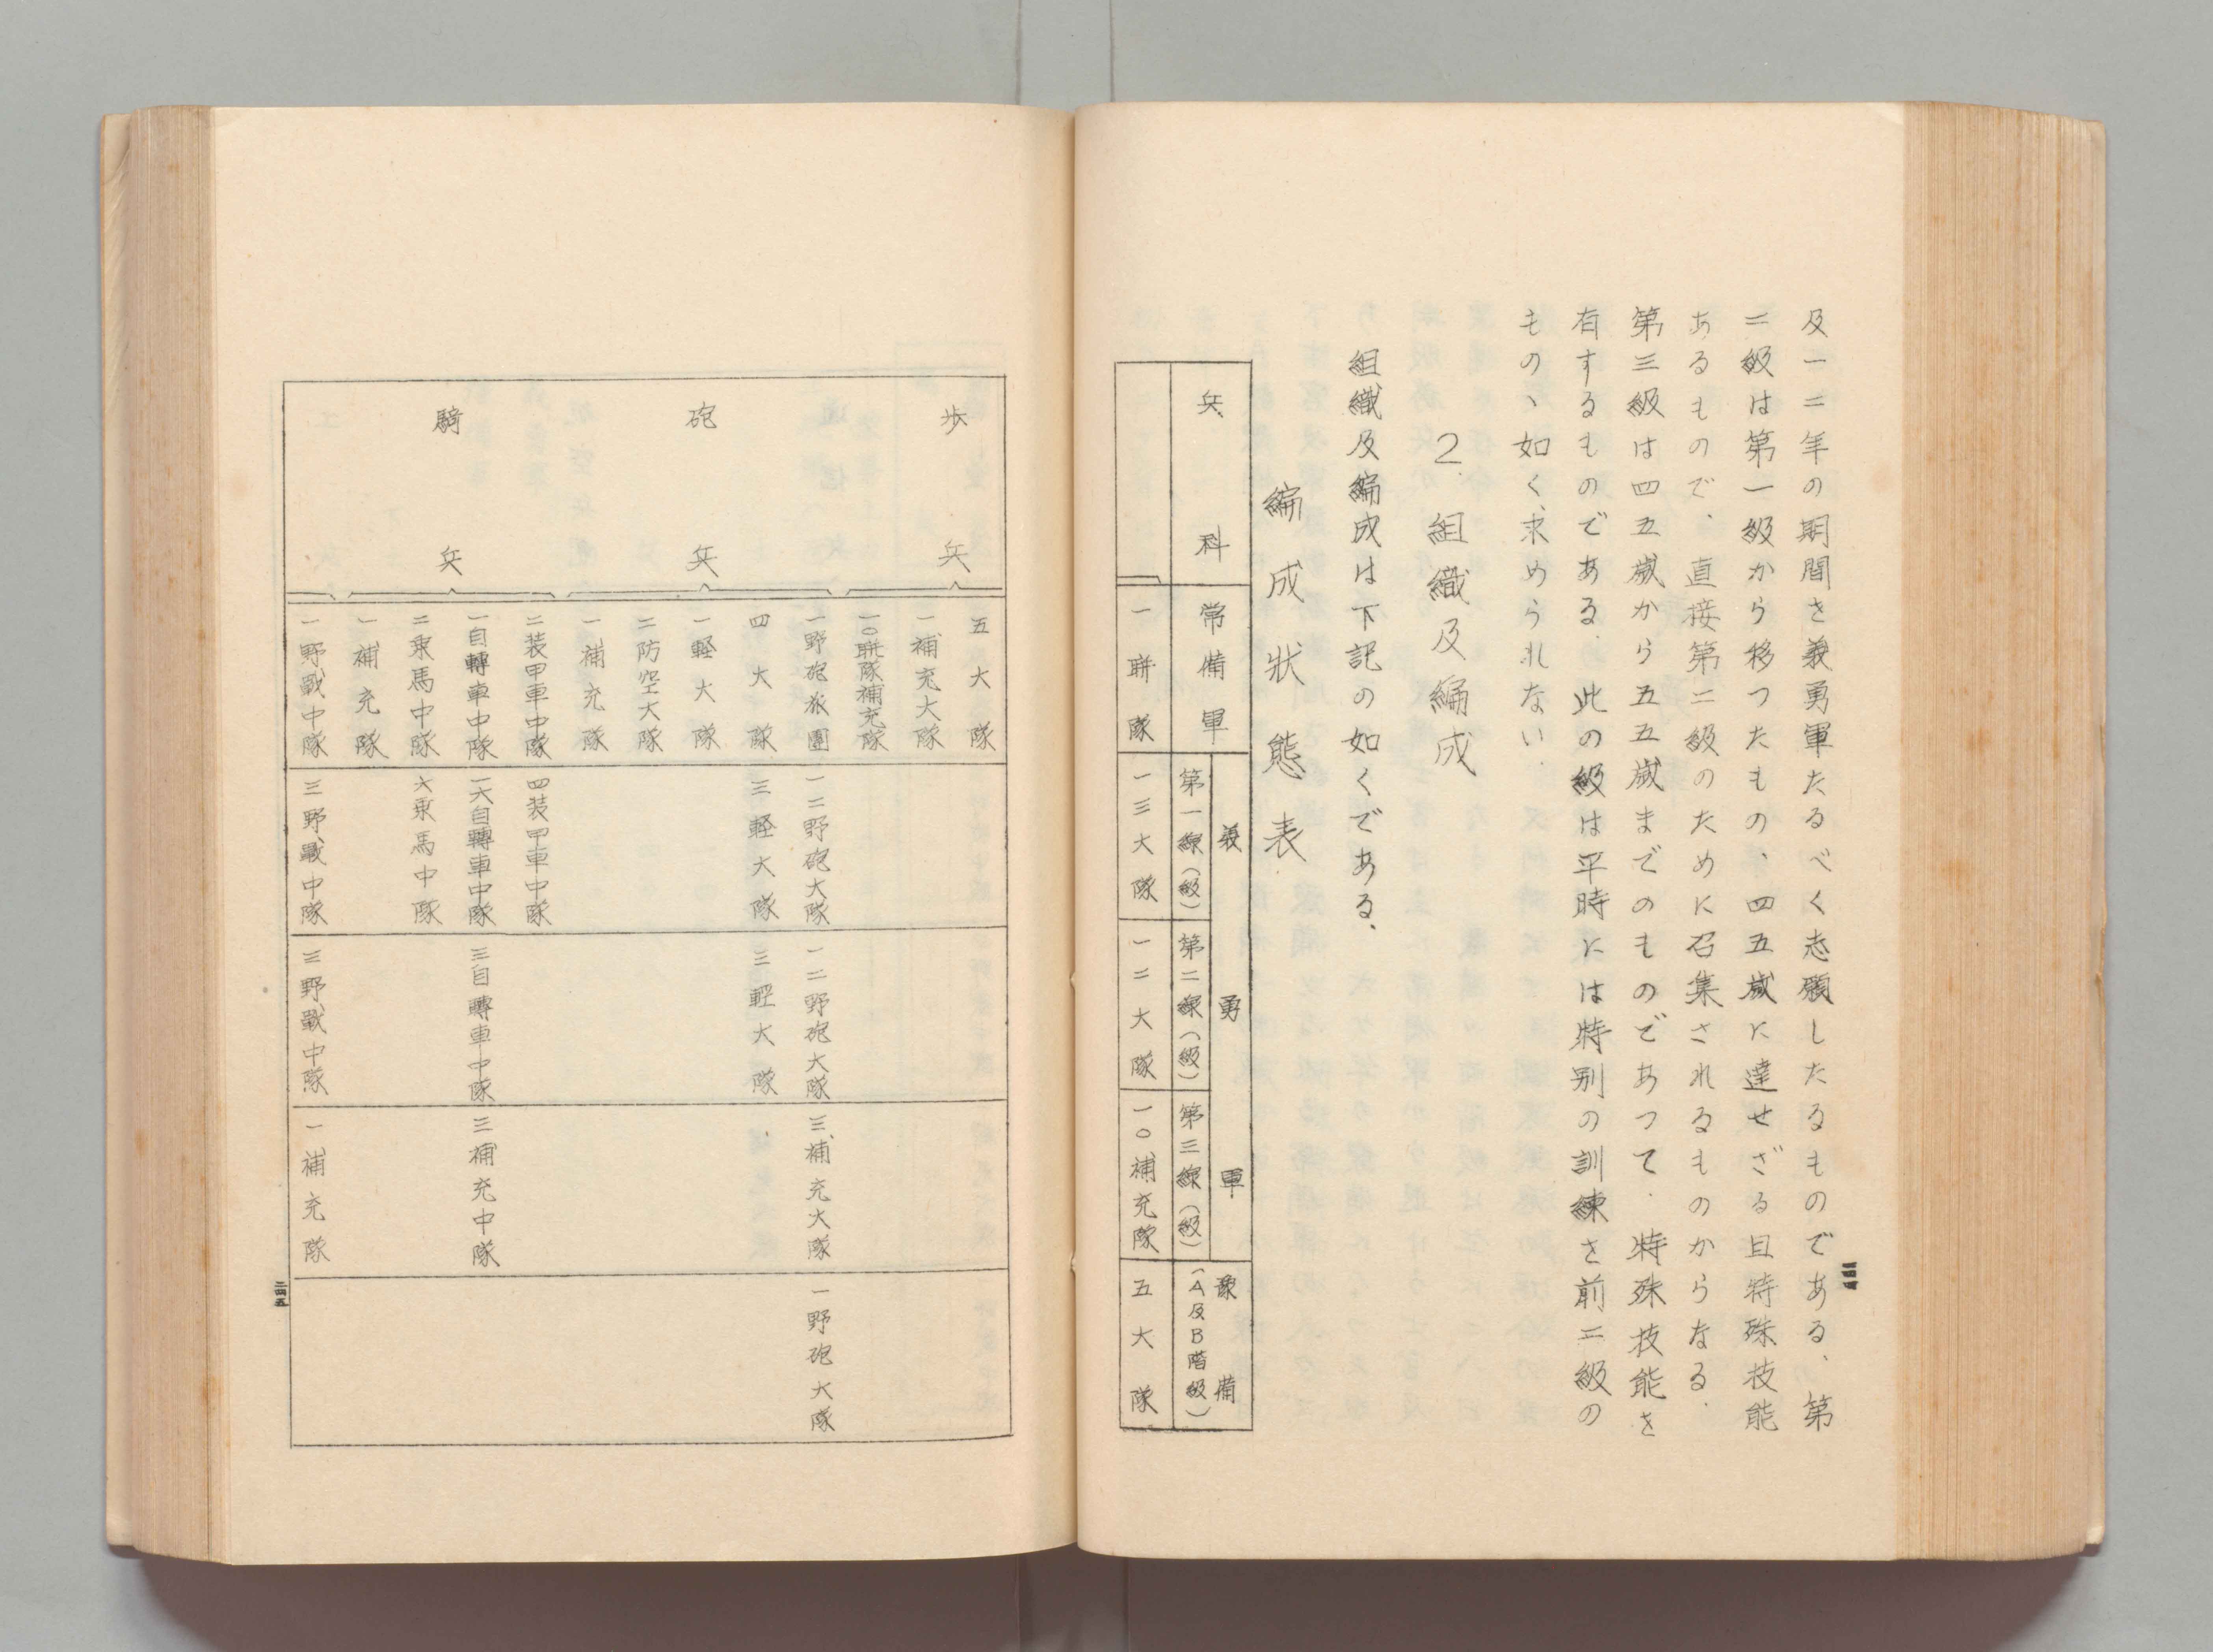 及一二年の期間を義勇軍たるべく志願したるものである、第
二級は第一級から移つたもの、四五歳に達せざる且特殊技能
あるもので、直接第二級のために召集されるものからなる.
第三級は四五歳から五五歳までのものであつて.特殊技能を
有するものである.此の級は平時には特別の訓練を前二級の
もの、如く、求められない.
2.組織及編成
組織及編成は下記の如くである、
編成狀態表
兵科
常備軍
義勇軍
第一線(級)
第二線(級)
第三線(級)
豫備
(A及B階級)
一聯隊
一三大隊
一二大隊
一〇補充隊
五大隊
歩兵
五大隊
一補充大隊
一〇聯隊補充隊
砲兵
一野砲旅團
一二野砲大隊
一二野砲大隊
三補充大隊
一野砲大隊
四大隊
三輕大隊
三輕大隊
一輕大隊
二防空大隊
一補充隊
騎兵
二装甲車中隊
四装甲車中隊
一自轉車中隊
一六自轉車中隊
三自轉車中隊
三補充中隊
二乗馬中隊
六乗馬中隊
一補充隊
一野戰中隊
三野戰中隊
三野戰中隊
一補充隊